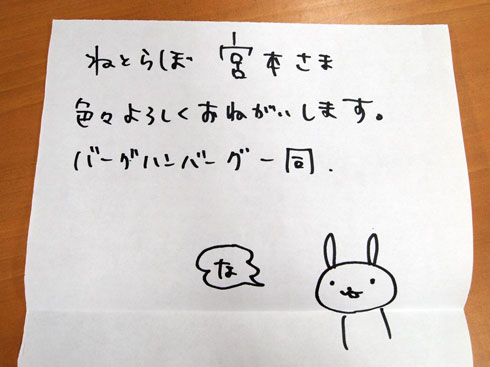 ねとらぼ 宮本さま
色々よろしくおねがいします。
バーグハンバーグ一同.
な